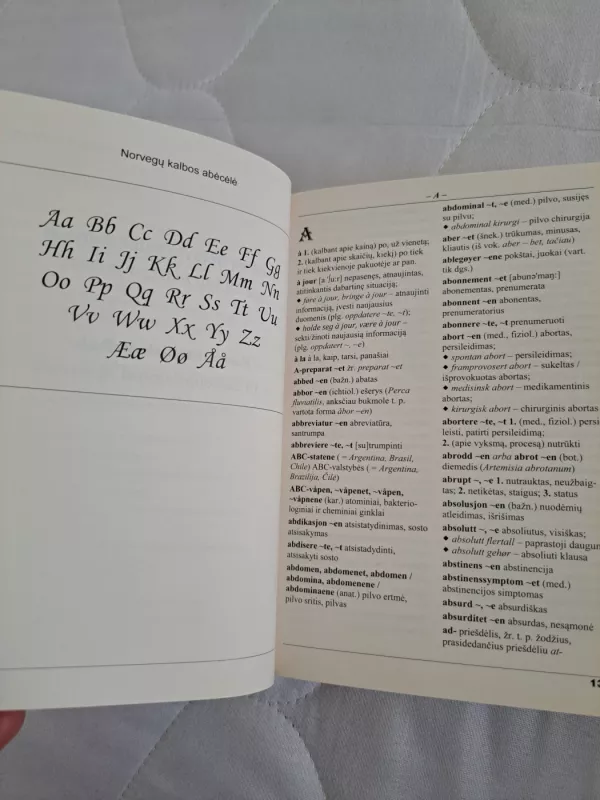 Norvegų kalbos abėcėlė
Aa Bb Cc Dd Ee Ff Gg
Hh Ii Jj Kk Ll Mm Nn
Oo Pp Qq Rr Ss Tt Uu
Vv Ww Xx Yy Zz
Ææ Øø Åå
– A –
A
à 1. (kalbant apie kainą) po, už vienetą;
2. (kalbant apie skaičių, kiekį) po tiek
ir tiek kiekvienoje pakuotėje ar pan.
à jour nepasenęs, atnaujintas,
atitinkantis dabartinę situaciją;
◆ føre à jour, bringe à jour – atnaujinti
informaciją, įvesti naujausius
duomenis (plg. oppdatere ~te, ~t);
◆ holde seg à jour, være à jour –
sekti/žinoti naujausią informaciją
(plg. oppdatert ~, ~e)
à la à la, kaip, tarsi, panašiai
A-preparat ~et žr. preparat ~et
abbed ~en (bažn.) abatas
abbor ~en (ichtiol.) ešerys (Perca
fluviatilis, anksčiau bokmole t. p.
vartota forma åbor ~en)
abbreviatur ~en abreviatūra,
santrumpa
abbreviere ~te, ~t [su]trumpinti
ABC-statene ( = Argentina, Brasil,
Chile) ABC-valstybės ( = Argentina,
Brazilija, Čilė)
ABC-våpen, ~våpenet, ~våpen,
~våpnene (kar.) atominiai, bakterio-
loginiai ir cheminiai ginklai
abdikasjon ~en atsistatydinimas, sosto
atsisakymas
abdisere ~te, ~t atsistatydinti,
atsisakyti sosto
abdomen, abdomenet, abdomen /
abdomina, abdomenene /
abdominaene (anat.) pilvo ertmė,
pilvo sritis, pilvas
abdominal ~t, ~e (med.) pilvo, susijęs
su pilvu;
◆ abdominal kirurgi – pilvo chirurgija
aber ~et (šnek.) trūkumas, minusas,
kliautis (iš vok. aber – bet, tačiau)
ablegøyer ~ene pokštai, juokai (vart.
tik dgs.)
abonnement ~et [abunə'maŋ:]
abonementas, prenumerata
abonnent ~en abonentas,
prenumeratorius
abonnere ~te, ~t prenumeruoti
abort ~en (med., fiziol.) abortas,
persileidimas;
◆ spontan abort – persileidimas;
◆ framprovosert abort – sukeltas /
išprovokuotas abortas;
◆ medisinsk abort – medikamentinis
abortas;
◆ kirurgisk abort – chirurginis abortas
abortere ~te, ~t 1. (med., fiziol.) persi-
leisti, patirti persileidimą;
2. (apie vyksmą, procesą) nutrūkti
abrodd ~en arba abrot ~en (bot.)
diemedis (Artemisia abrotanum)
abrupt ~, ~e 1. nutrauktas, neužbaig-
tas; 2. netikėtas, staigus; 3. status
absolusjon ~en (bažn.) nuodėmių
atleidimas, išrišimas
absolutt ~, ~e absoliutus, visiškas;
◆ absolutt flertall – paprastoji daugum
◆ absolutt gehør – absoliuti klausa
abstinens ~en abstinencija
abstinenssymptom ~et (med.)
abstinencijos simptomas
absurd ~, ~e absurdiškas
absurditet ~en absurdas, nesąmonė
ad- priešdėlis, žr. t. p. žodžius,
prasidedančius priešdėliu at-
13